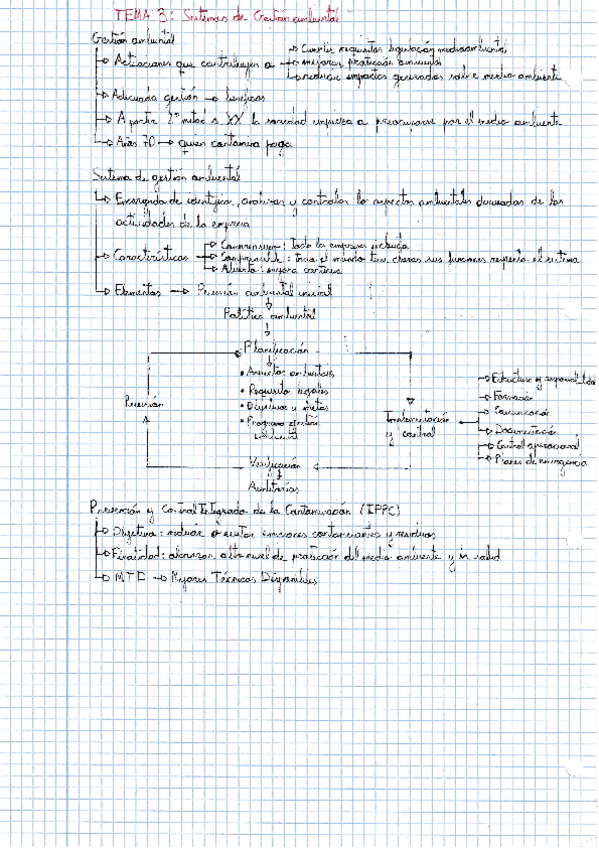 TEMA 3: Sistemas de Gestión ambiental
Gestión ambiental
→ Actuaciones que contribuyen a → Cumplir requisitos legislación medioambiental
→ mejorar protección ambiental
→ reducir impactos generados sobre medio ambiente
→ Adecuada gestión → beneficios
→ A partir 2ª mitad s. XX la sociedad empieza a preocuparse por el medio ambiente
→ Años 70 → quien contamina paga
Sistema de gestión ambiental
→ Encargado de identificar, analizar y controlar los aspectos ambientales derivados de las
actividades de la empresa
→ Características → : Toda la empresa incluida
→ Comprensible : todo el mundo tiene claras sus funciones respecto al sistema
→ Abierto : mejora continua
→ Elementos → Revisión ambiental inicial
Política ambiental
Planificación
• Aspectos ambientales
• Requisitos legales
• Objetivos y metas
• Programa gestión
ambiental
Revisión
Implementación
y control
→ Estructura y responsabilidades
→ Formación
→ Comunicación
→ Documentación
→ Control operacional
→ Planes de emergencia
Verificación
Auditorías
Prevención y Control Integrado de la Contaminación (IPPC)
→ Objetivo : reducir o evitar emisiones contaminantes y residuos
→ Finalidad : alcanzar alto nivel de protección del medio ambiente y la salud
→ MTD → Mejores Técnicas Disponibles